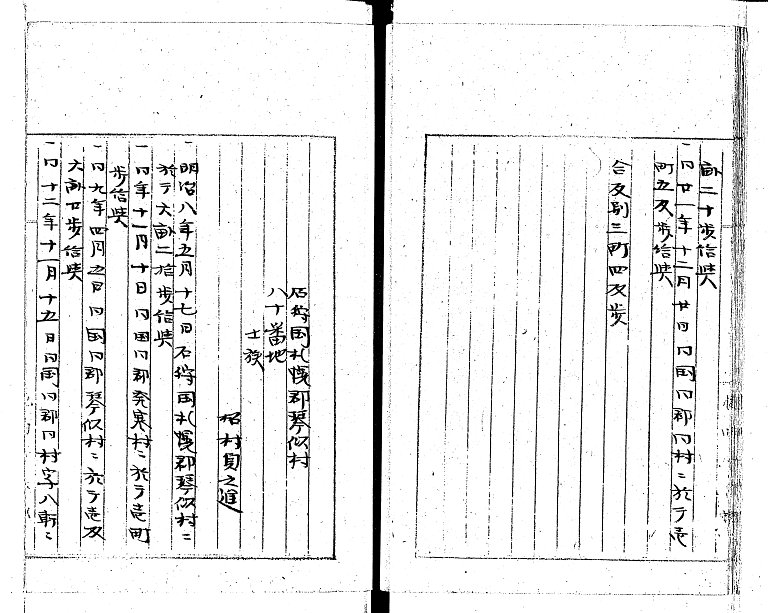 畝二十歩給与
一同廿一年十二月廿日同国同郡同村ニ於テ壱
町五反歩給与
合反別三町四反歩
石狩国札幌郡琴似村
八十番地
士族
村員之進
一明治八年五月十七日石狩国札幌郡琴似村ニ
於テ六畝二拾歩給与
一同年十一月十日同国同郡発寒村ニ於テ壱町
歩給与
一同九年四月五日同国同郡琴似村ニ於テ壱反
六畝廿歩給与
一同十二年十一月十五日同国同郡同村字八軒ニ